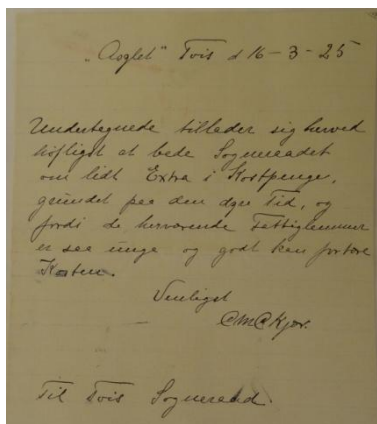 "Asylet" Tvis d 16-3-25
Undertegnede tillader sig herved
høfligst at bede Sogneraadet
om lidt Extra i Kostpenge,
grundet paa den dyre Tid, og
fordi de herværende Fattiglemmer
er saa unge og godt kan fortære
Kosten.
Venligst
C M C Kjær.
Til Tvis Sogneraad.